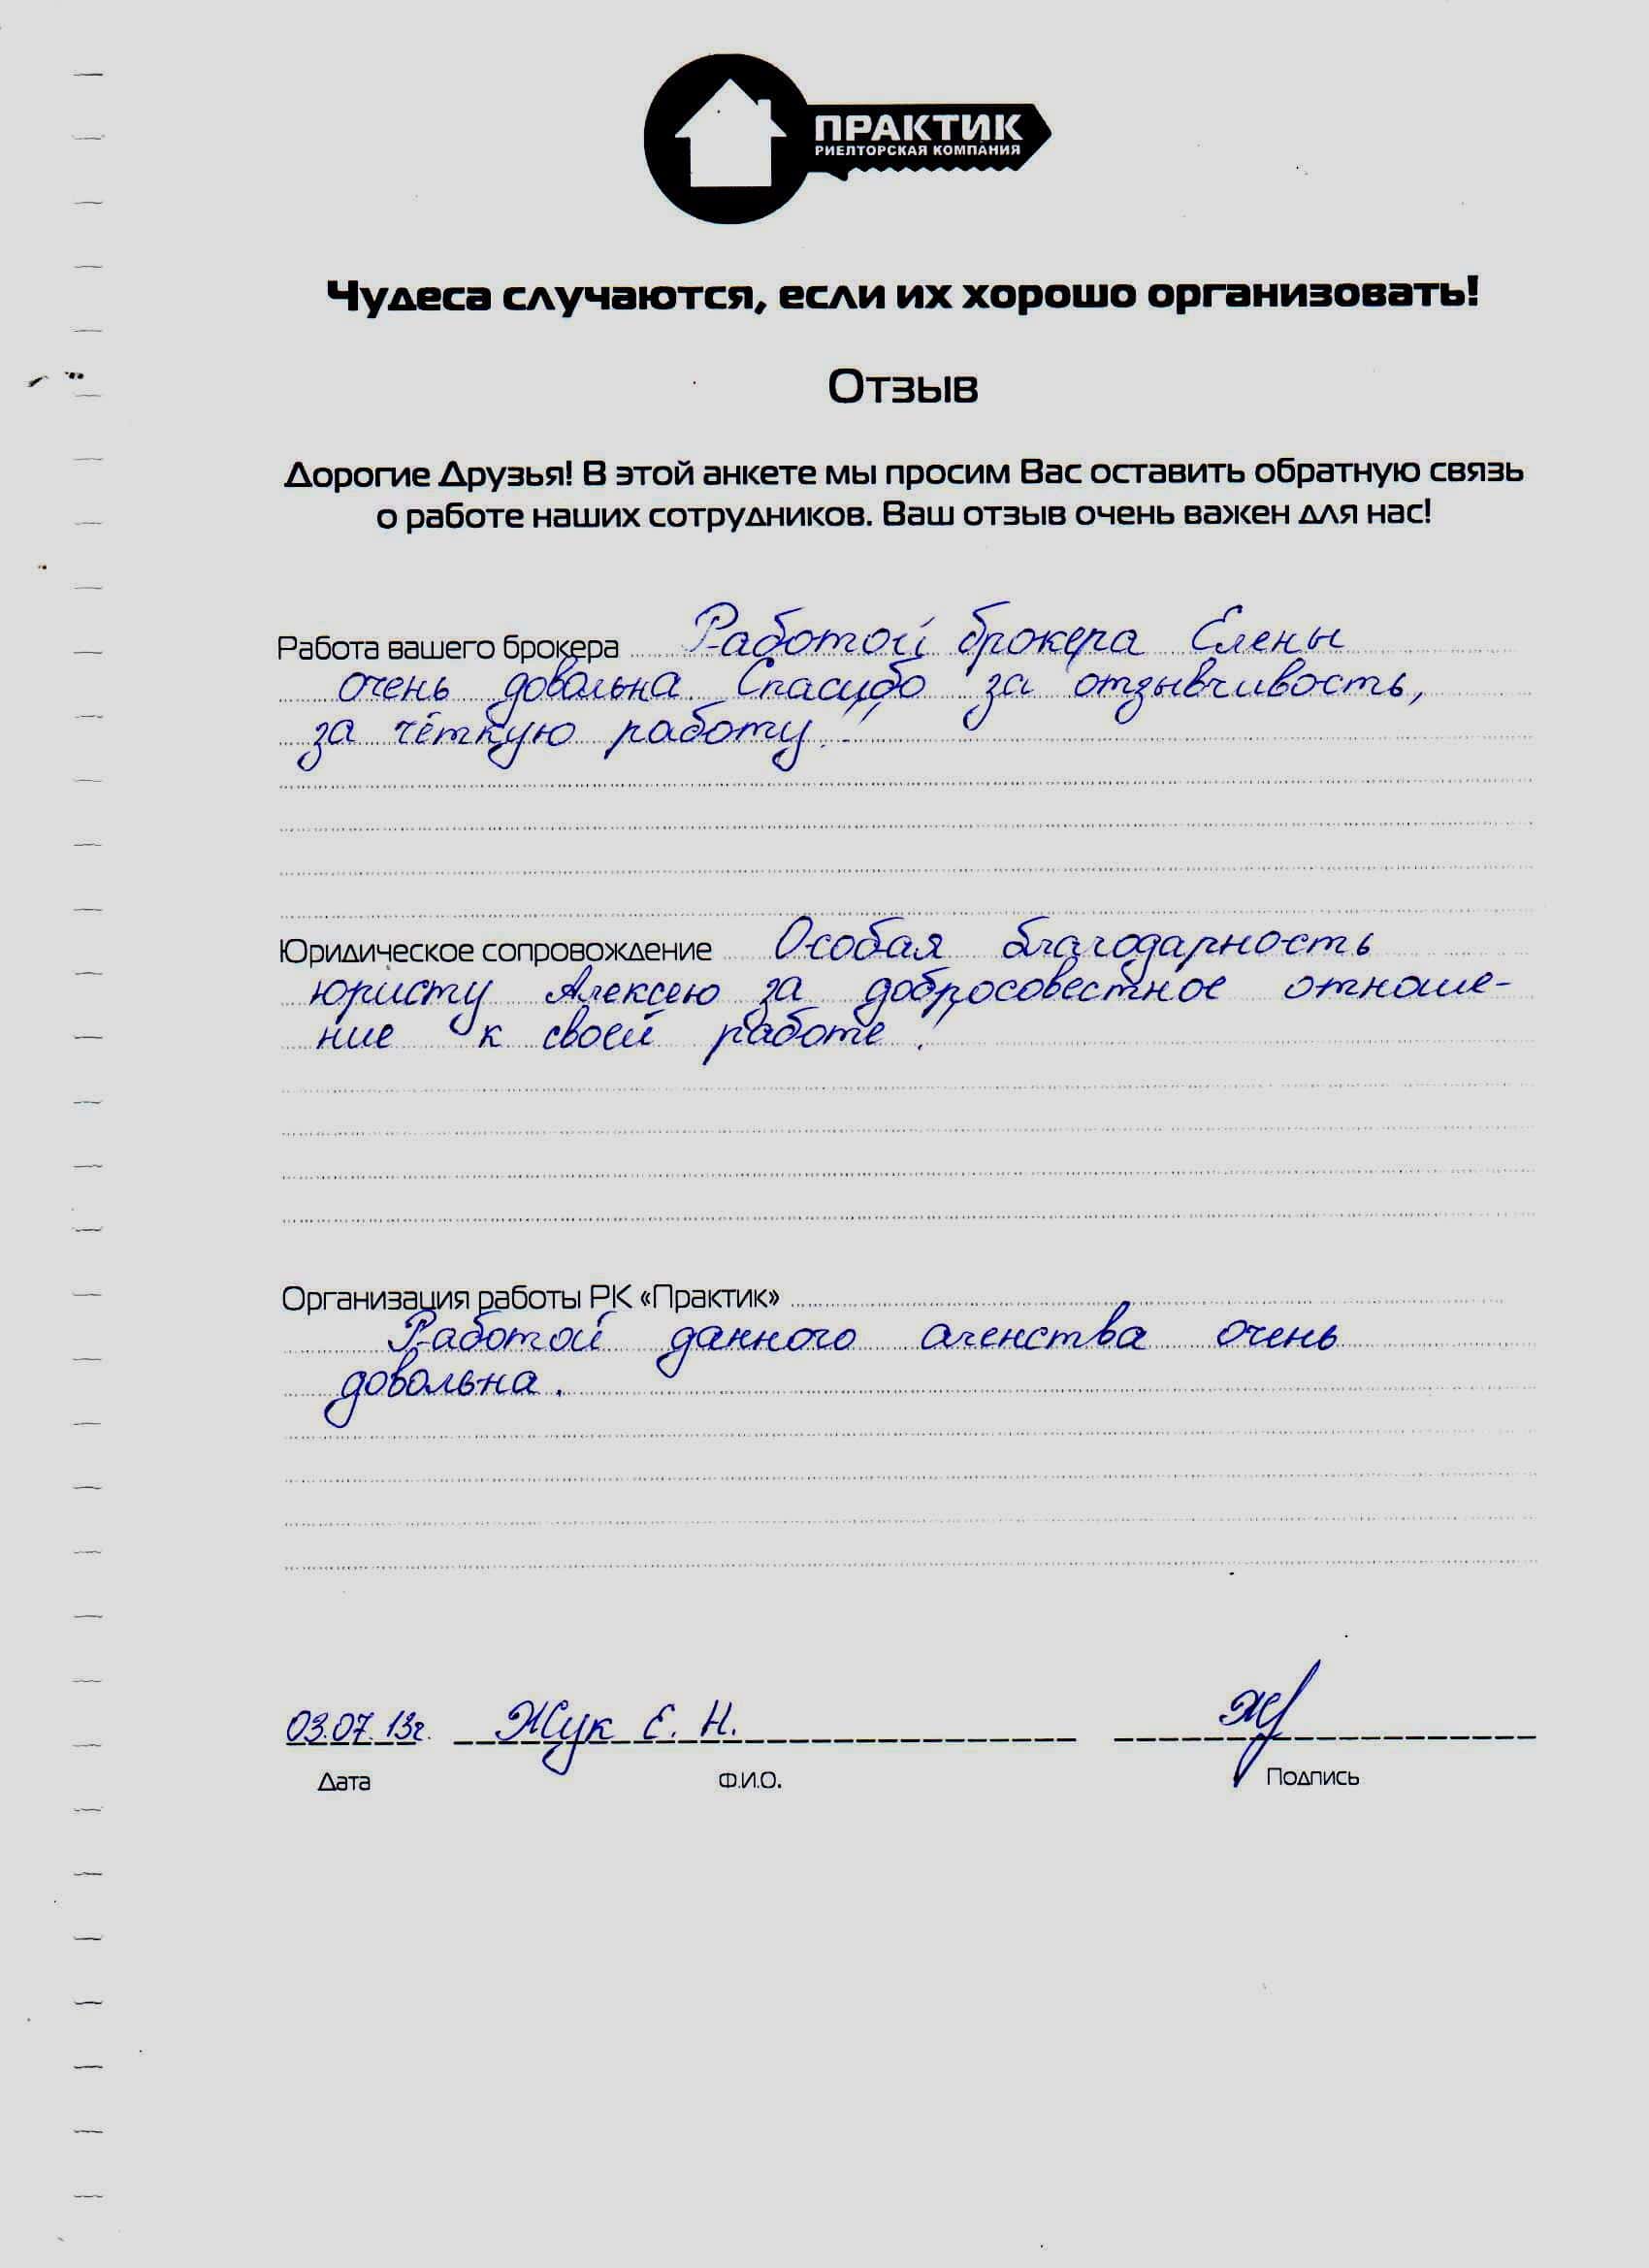 ПРАКТИК
РИЕЛТОРСКАЯ КОМПАНИЯ
Чудеса случаются, если их хорошо организовать!
Отзыв
Дорогие Друзья! В этой анкете мы просим Вас оставить обратную связь
о работе наших сотрудников. Ваш отзыв очень важен для нас!
Работа вашего брокера Работой брокера Елены
очень довольна. Спасибо за отзывчивость,
за чёткую работу!!
Юридическое сопровождение Особая благодарность
юристу Алексею за добросовестное отноше-
ние к своей работе!
Организация работы РК «Практик»
Работой данного агенства очень
довольна.
03.07.13г. Жук Е. Н.
Дата Ф.И.О. Подпись